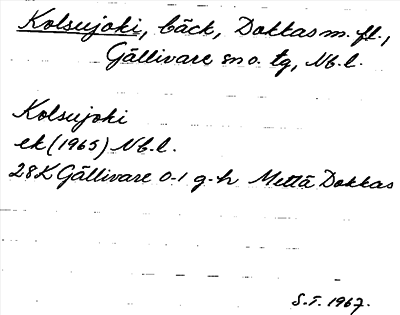 Kolsujoki, bäck, Dokkas m. fl.,
Gällivare sn o. tg, Nb.l.
Kolsujoki
ek (1965) Nb.l.
28K Gällivare 0-1 g-h Mettä Dokkas
S.T. 1967.